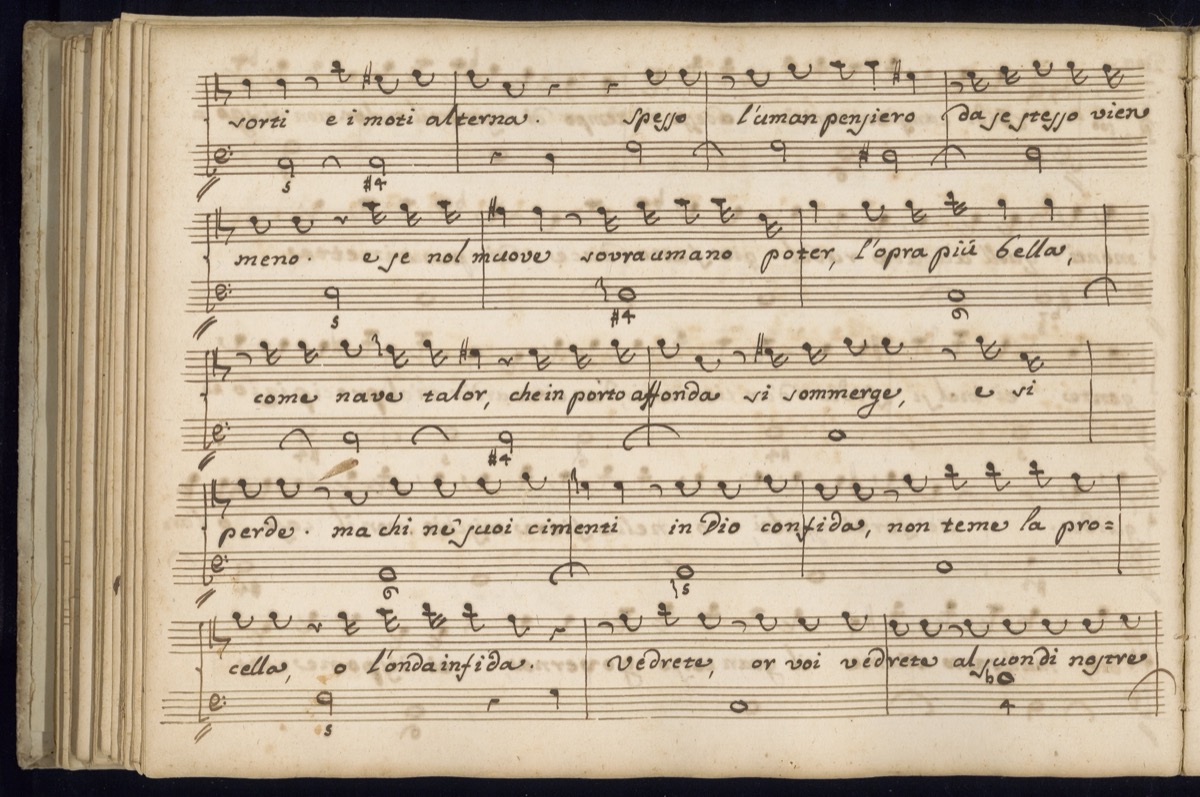 sorti e i moti alterna. spesso l'uman pensiero da se stesso vien
s #4
meno. e se nol muove sovraumano poter, l'opra più bella,
s #4 6
come nave talor, che in porto affonda si sommerge, e si
#4
perde. ma chi ne' suoi cimenti in Dio confida, non teme la pro=
6 s
cella, o l'onda infida. Vedrete, or voi vedrete al suon di nostre
s b 4